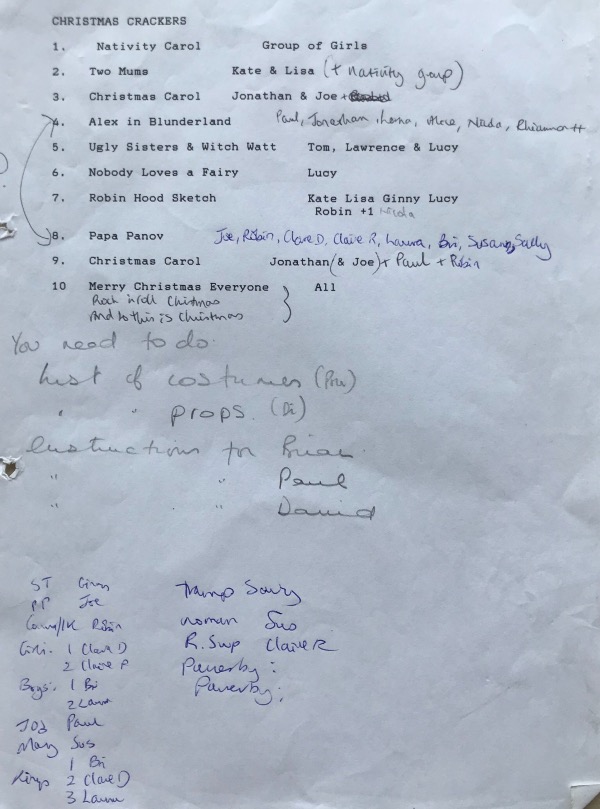 CHRISTMAS CRACKERS
1. Nativity Carol Group of Girls
2. Two Mums Kate & Lisa (+ nativity group)
3. Christmas Carol Jonathan & Joe +
4. Alex in Blunderland Paul, Jonathan, Nicola, Rhiannon H
5. Ugly Sisters & Witch Watt Tom, Lawrence & Lucy
6. Nobody Loves a Fairy Lucy
7. Robin Hood Sketch Kate Lisa Ginny Lucy
Robin +1 Nicola
8. Papa Panov Joe, Robin, Clare D, Claire R, Laura, Bri, Susan, Sally
9. Christmas Carol Jonathan (& Joe) + Paul + Robin
10 Merry Christmas Everyone All
Rock n roll Christmas
And so this is Christmas
You need to do:
List of costumes (Pru)
" " props. (Di)
Instructions for Brian
" " Paul
" " David
ST Ginny
PP Joe
Robin
Girls. 1 Clare D
2 Claire R
Boys. 1 Bri
2 Laura
Jos Paul
Mary Sus
1 Bri
Kings 2 Clare D
3 Laura
Tramp Sally
Woman Sus
R. Swp Claire R
Passerby:
Passerby: